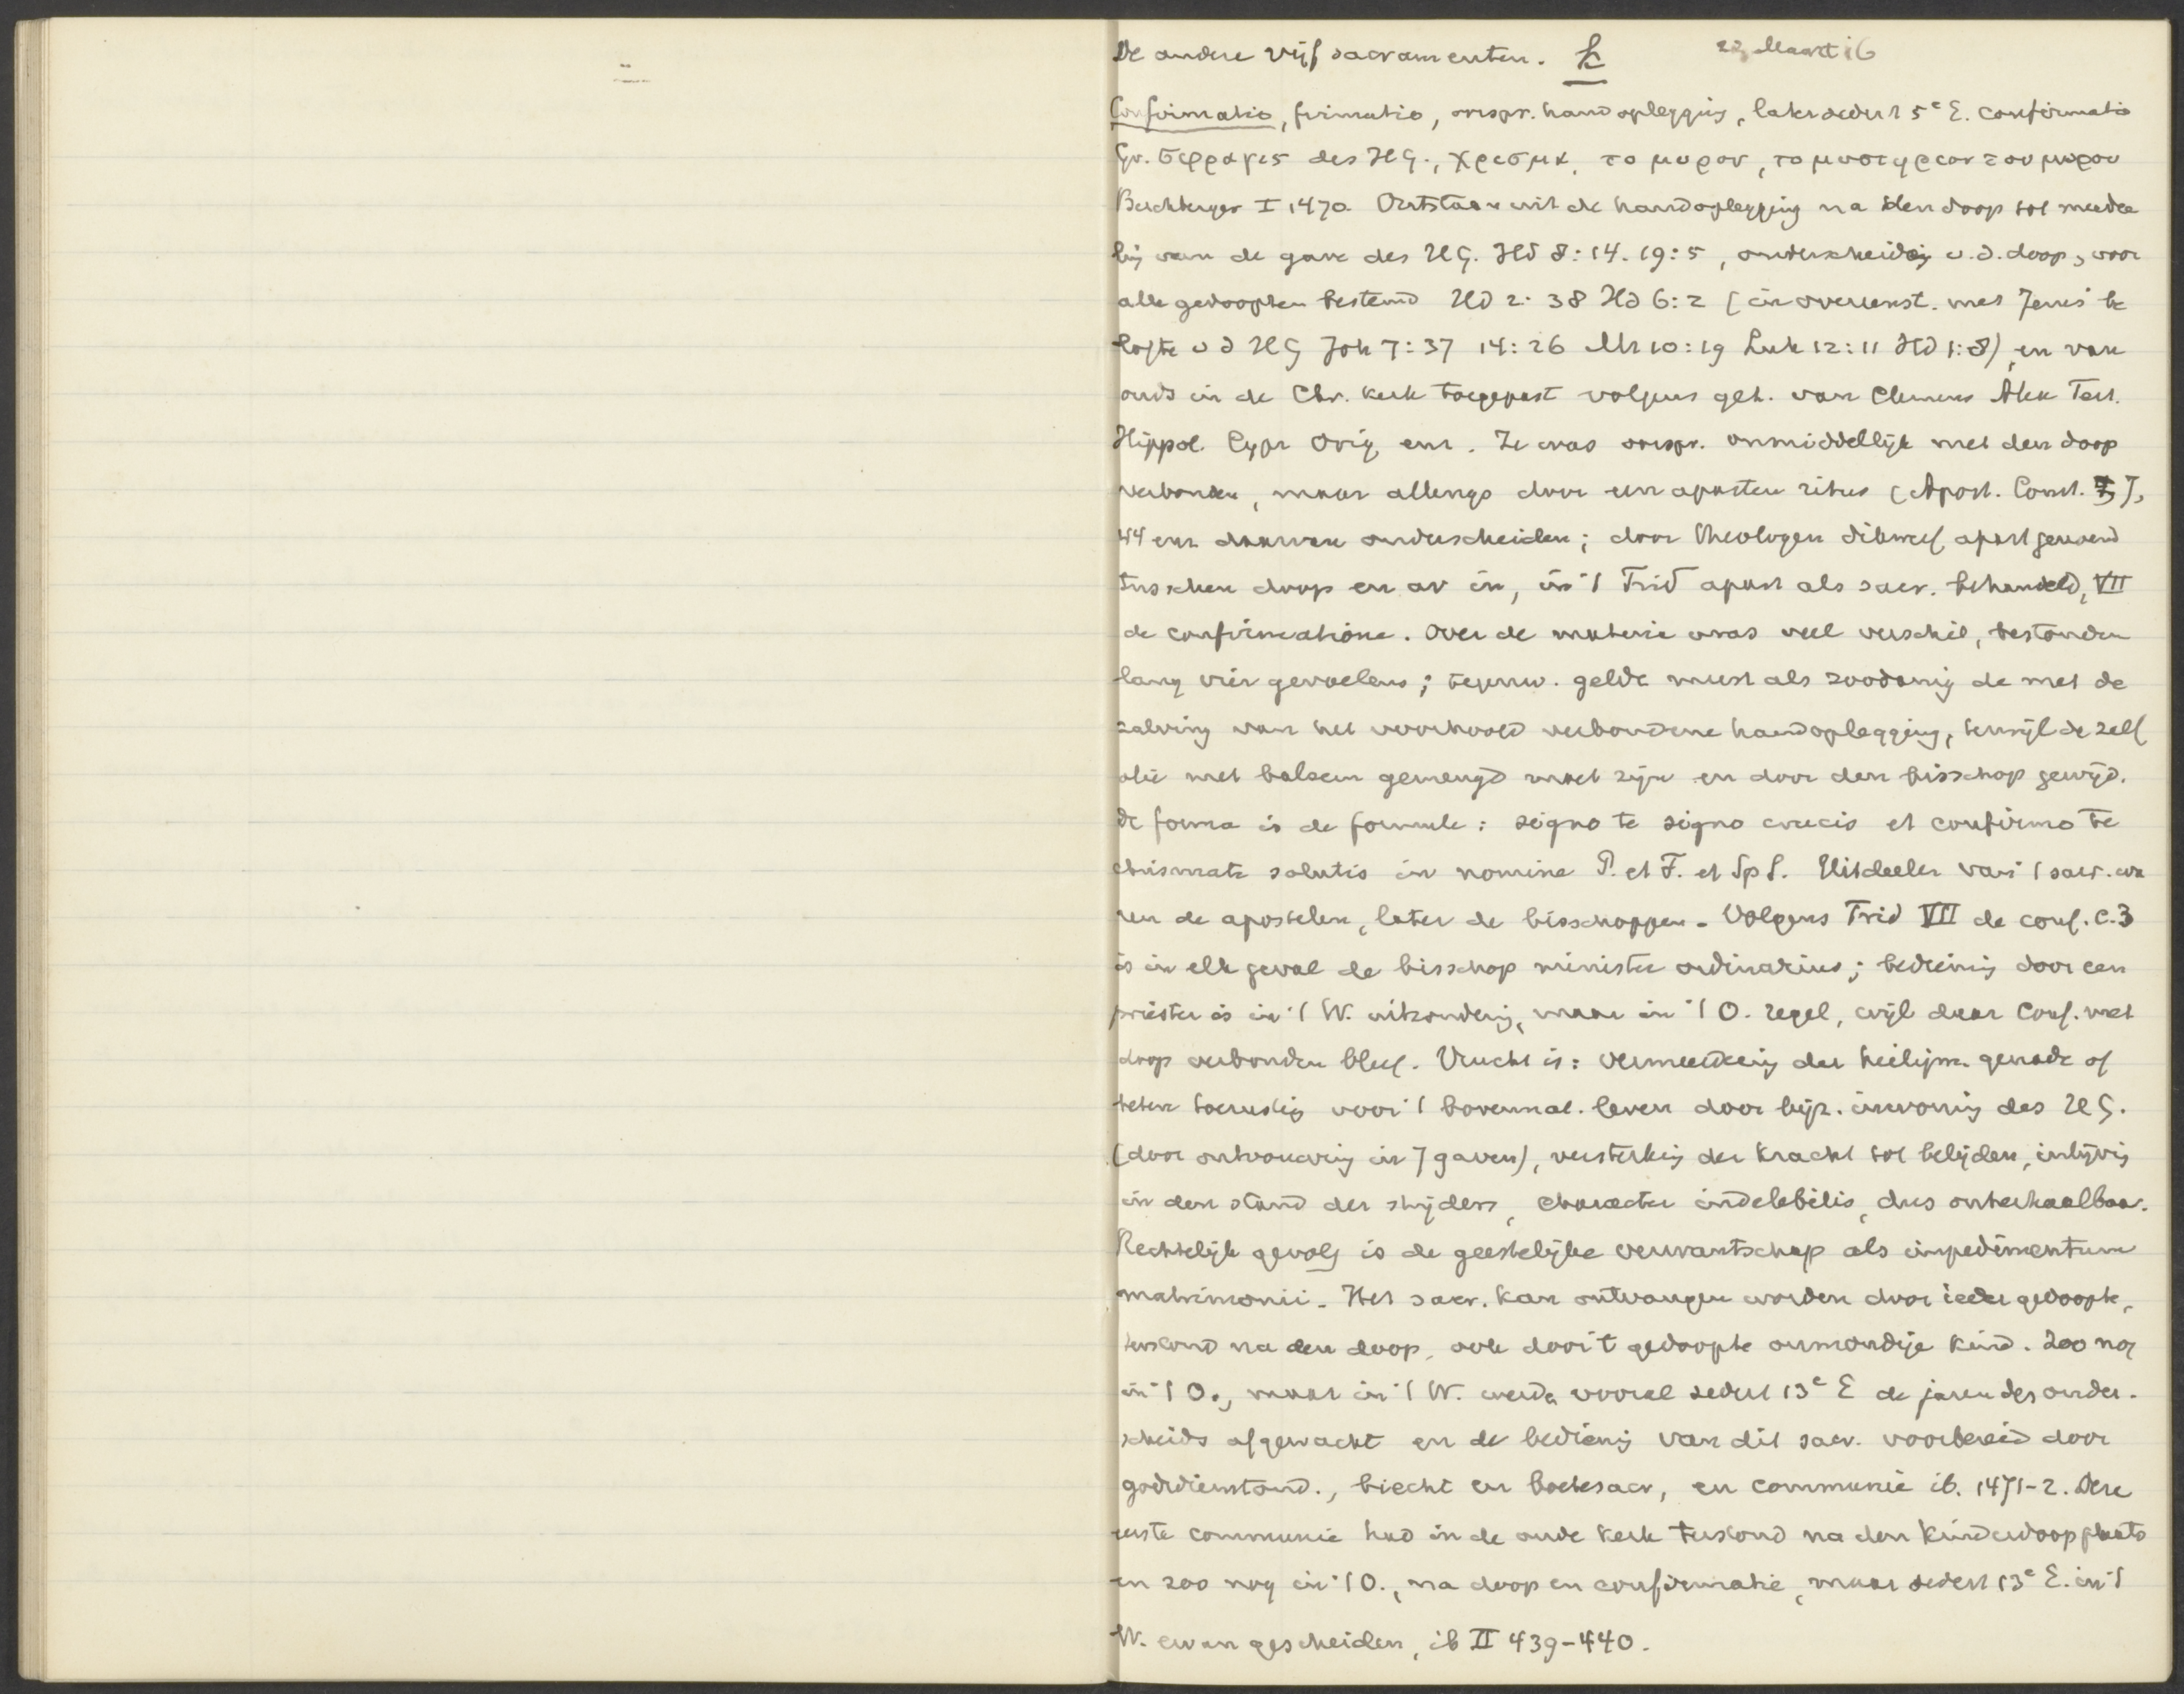 De andere vijf sacramenten. 22 Maart 16
Confirmatio, firmatio, oorspr. handoplegging, later sedert 5e E. confirmatio
Gr. σφραγις des HG., χρισμα, το μυρον, το μυστηριον του μυρου
Buchberger I 1470. Ontstaan uit de handoplegging na den doop tot meedee
ling van de gave des HG. Hd 8:14. 19:5, onderscheidg v. d. doop, voor
alle gedoopten bestemd Hd 2:38 Hd 6:2 (in overeenst. met Jezus' be
lofte v d HG Joh 7:37 14:26 Mt 10:19 Luk 12:11 Hd 1:8), en van
ouds in de Chr. kerk toegepast volgens get. van Clemens Alex Tert.
Hippol. Cypr Orig enz. Ze was oorspr. onmiddellijk met den doop
verbonden, maar allengs door een aparten ritus (Apost. Const. 7,
44 enz daarvan onderscheiden; door theologen dikwerf apart genoemd
tusschen doop en av in, in 't Trid apart als sacr. behandeld, VII
de confirmatione. Over de materie was veel verschil, bestonden
lang vier gevoelens; tegenw. geldt meest als zoodanig de met de
zalving van het voorhoofd verbondene handoplegging, terwijl de zelf
olie met balsem gemengd moet zijn en door den bisschop gewijd.
De forma is de formule: signo te signo crucis et confirmo te
chrismate salutis in nomine P. et F. et Sp S. Uitdeeler van 't sacr. wa
ren de apostelen, later de bisschoppen. Volgens Trid VII de conf. c. 3
is in elk geval de bisschop minister ordinarius; bediening door een
priester is in 't W. uitzondering, maar in 't O. regel, wijl daar Conf. met
doop verbonden bleef. Vrucht is: vermeerdering der heiligm. genade of
betere toerusting voor 't bovennat. leven door bijz. inwoning des HG.
(door ontvouwing in 7 gaven), versterking der kracht tot belijden, inlijving
in den stand der strijders, character indelebilis, dus onherhaalbaar.
Rechtelijk gevolg is de geestelijke verwantschap als impedimentum
matrimonii. Het sacr. kan ontvangen worden door ieder gedoopte,
terstond na den doop, ook door 't gedoopte onmondige kind. Zoo nog
in 't O., maar in 't W. werdn vooral sedert 13e E de jaren des onder-
scheids afgewacht en de bediening van dit sacr. voorbereid door
godsdienstond., biecht en boetesacr, en communie ib. 1471-2. Deze
eerste communie had in de oude kerk terstond na den kinderdoop plaats
en zoo nog in 't O., na doop en confirmatie, maar sedert 13e E. in 't
W. ervan gescheiden, ib II 439-440.